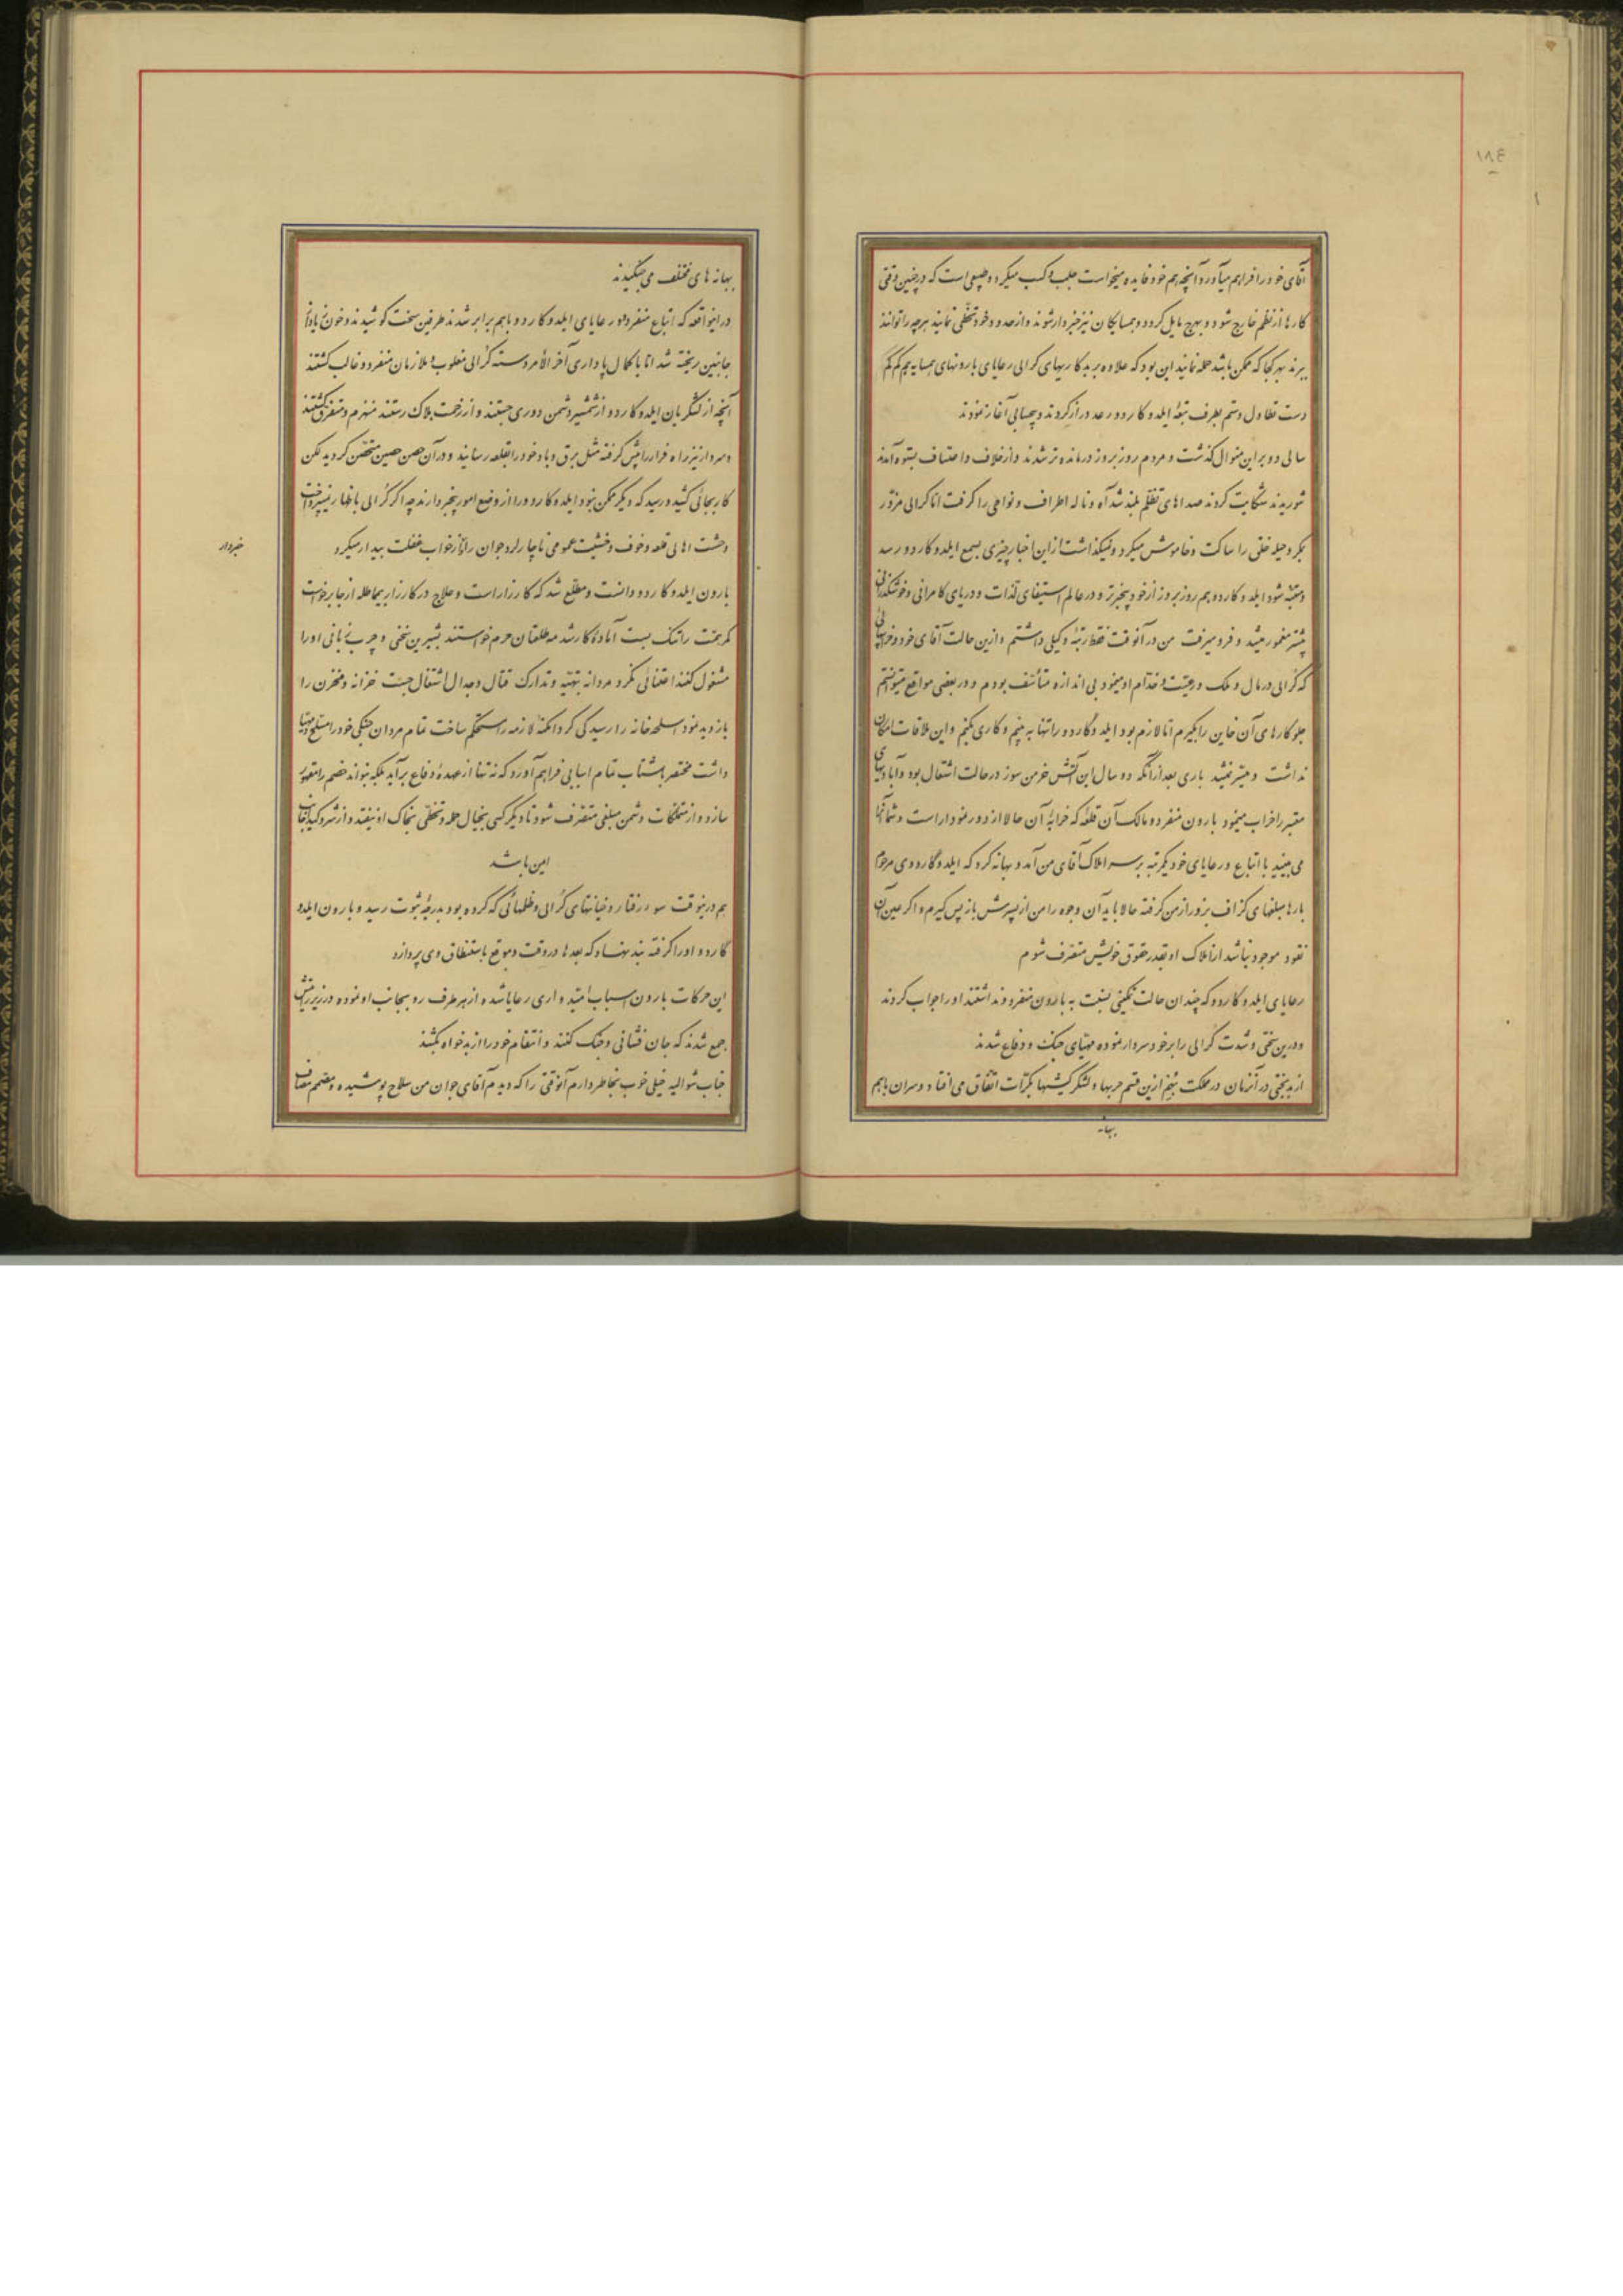 ١٨٤
آقای خود را فراهم میآورد و آنچه هم خود فایده میخواست جلب و کسب میکرد و طبیعی است که در چنین وقتی
کارها از نظم خارج شود و بهرج مایل گردد و همسایگان نیز خبردار شوند و از حدود خود تخطی نمایند هرچه را توانند
ببرند بهر کجا که ممکن باشد حمله نمایند این بود که علاوه بر بدکاریهای کرالی رعایای بارونهای همسایه هم کم کم
دست تطاول و ستم بطرف تبعهٔ ایلدوکاردو رعد دراز کردند و بیحسابی آغاز نمودند
سالی دو بر این منوال گذشت و مردم روز بروز درمانده تر شدند و از خلاف و اعتساف بستوه آمدند
شوریدند شکایت کردند صداهای تظلم بلند شد آه و ناله اطراف و نواحی را گرفت اما کرالی مزوّر
بمکر و حیله خلق را ساکت و خاموش میکرد و نمیگذاشت از این اخبار چیزی بسمع ایلدوکاردو رسد
و متنبّه شود ایلدوکاردو هم روز بروز از خود بیخبرتر و در عالم استیفای لذات و دریای کامرانی و خوشگذرانی
بیشتر مغمور میشد و فرو میرفت من در آنوقت فقط رتبهٔ وکیلی داشتم و ازین حالت آقای خود و خرابیهائی
که کرالی در مال و ملک و رعیّت و خدّام او مینمود بی اندازه متأسّف بودم و در بعضی مواقع میتوانستم
جلو کارهای آن خاین را بگیرم امّا لازم بود ایلدوگاردو را تنها به بینم و کاری بکنم و این ملاقات امکان
نداشت و میسّر نمیشد باری بعد از آنکه دو سال این آتش خرمن سوز در حالت اشتعال بود و آبادیهای
معتبر را خراب مینمود بارون منفردو مالک آن قلعهٔ که خرابهٔ آن حالا از دور نمودار است و شما آنرا
می بینید با اتباع و رعایای خود یکمرتبه بر سر املاک آقای من آمد و بهانه کرد که ایلدوگاردوی مرحوم
بارها مبلغهای گزاف بزور از من گرفته حالا باید آن وجوه را من از پسرش بازپس گیرم و اگر عین آن
نقود موجود نباشد از املاک او بقدر حقوق خویش متصرّف شوم
رعایای ایلدوکاردو که چندان حالت تمکینی نسبت به بارون منفردو نداشتند او را جواب کردند
و درین سختی و شدت کرالی را بر خود سردار نموده مهیّای جنگ و دفاع شدند
از بدبختی در آنزمان در مملکت ازین قسم حربها و لشکرکشیها بکرّات اتّفاق می افتاد و سران باهم
بهانه
بهانه های مختلف می جنگیدند
در اینواقعه که اتباع منفردو و رعایای ایلدوکاردو باهم برابر شدند طرفین سخت کوشیدند و خون زیاد از
جانبین ریخته شد امّا با کمال پاداری آخر الأمر دستهٔ کرالی مغلوب و ملازمان منفردو غالب گشتند
آنچه از لشکریان ایلدوکاردو از شمشیر دشمن دوری جستند و از زحمت هلاک رستند منهزم و متفرق گشتند
و سردار نیز راه فرار را پیش گرفته مثل برق و باد خود را بقلعه رسانید و در آن حصن حصین متحصّن گردید لکن
کار بجائی کشید و رسید که دیگر ممکن نبود ایلدوکاردو را از وضع امور بیخبر دارند چه اگر کرالی باظهار نمیپرداخت
وحشت اهالی قلعه و خوف و خشیت عمومی ناچار لرد جوان را از خواب غفلت بیدار میکرد
خبردار
بارون ایلدوکاردو دانست و مطّلع شد که کار زار است و علاج در کارزار بیمماطله از جا برخواست
کمر همّت را تنگ بست آمادهٔ کار شد مه طلعتان حرم خواستند بشیرین سخنی و چرب زبانی او را
مشغول کنند اعتنائی نکرد مردانه بتهیّه و تدارک قتال و جدال اشتغال جست خزانه و مخزن را
بازدید نمود اسلحه خانه را رسیدگی کرد امکنهٔ لازمه را مستحکم ساخت تمام مردان جنگی خود را مسلّح و مهیّا
داشت مختصر بشتاب تمام اسبابی فراهم آورد که نه تنها از عهدهٔ دفاع برآید بلکه بتواند خصم را مقهور
سازد و از متملّکات دشمن مبلغی متصرّف شود تا دیگر کسی بخیال حمله و تخطّی بخاک او نیفتد و از شر و کید اجانب
ایمن باشد
هم درینوقت سوء رفتار و خیانتهای کرالی و ظلمهائی که کرده بود بدرجهٔ ثبوت رسید و بارون ایلدو
گاردو او را گرفته بند نهاد که بعدها در وقت و موقع باستنطاق وی پردازد
این حرکات بارون اسباب امیدواری رعایا شده از هر طرف رو بجانب او نموده در زیر رایتش
جمع شدند که جان فشانی و جنگ کنند و انتقام خود را از بدخواه بکشند
جناب شوالیه خیلی خوب بخاطر دارم آنوقتی را که دیدم آقای جوان من سلاح پوشیده و مصمّم مصاف